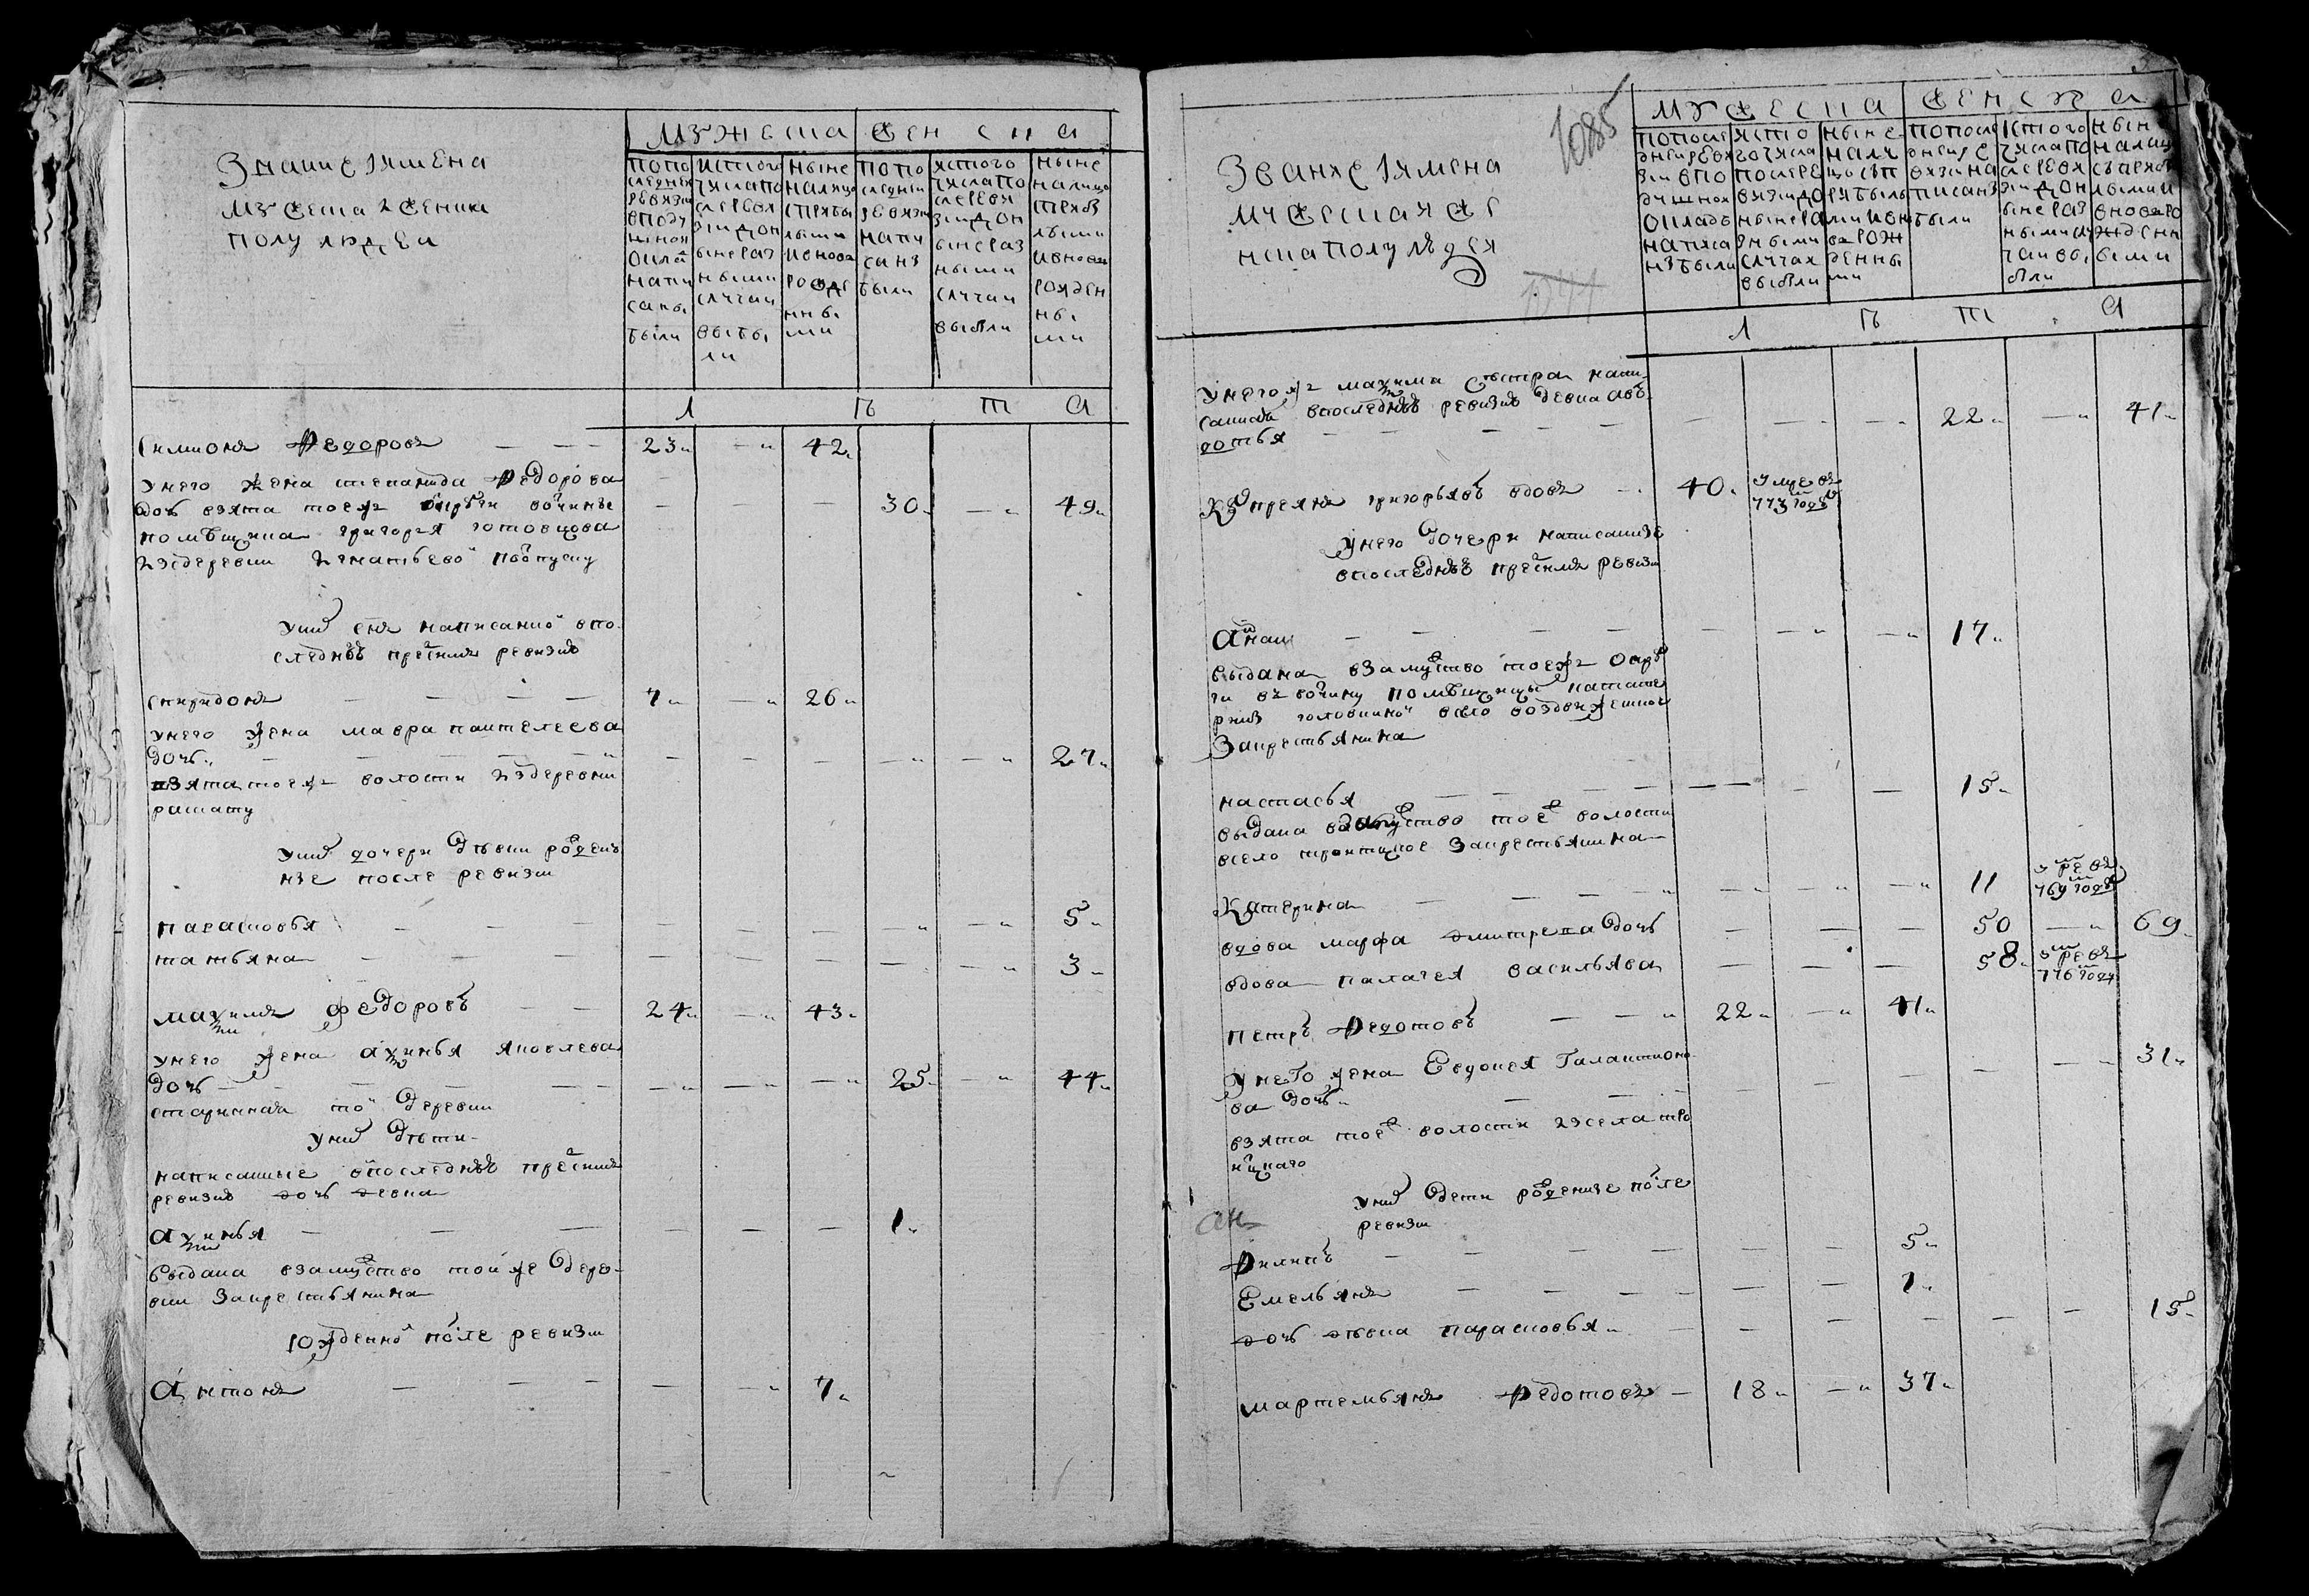 Звание Iимена
мужеска Iженска
полу людеи
мужеска женска
попоследнеи ревизии вподушнои окладъ написаны были
истого числа после ревизии доныне разными случаи выбыли
ныне налицо спрежбылыми Iвновь рожденными
попоследнеи ревизии написанз были
истого числа после ревизии доныне разными случаи выбыли
ныне налицо спрежбылыми Iвновь рожденными
л ѣ т а
Симионъ Федоровъ — — — 23 — 42
унего жена степанида Федорова
дочь взята тоежъ округи вочинъ 30 — 49
помѣщика григорья готовцова
издеревни Iгнатьевои поотпуску
унихъ снъ написаннои впо
следнѣй пресшия ревизиѣ
спиридонъ — — — — 7 — 26
унего жена мавра пантелеева
дочь — — — — 27
взята тоежъ волости издеревни
рамату
унихъ дочери дѣвки рожден
ные после ревизии
парасковья — — — 5
татьяна — — — 3
махимъ федоровъ — — 24 — 43
унего жена ахинья яковлева
дочь — — — 25 — 44
старинная тои деревни
унихъ дѣти
написанные впоследнѣй преснию
ревизию дочь девка
ахинья — — — 1
выдана взамужство тойже дере
вни закрестьянина
рожденнои после ревизии
Антонъ — — — 7
1085
Звание Iимена
мужеска Iже
нска полу людеи
мужеска женска
попоследнеи ревизии вподушнои окладъ написаны были
Iстого числа после ревизии доныне разными случаи выбыли
ныне налицо спрежбыльми Iвновь рожденными
попоследнеи ревизии написанз были
Iстого числа послеревизии доныне разными случаи выбыли
ныне налицо съ прежбылыми Iвноворожденными
л ѣ т а
унегожъ махима сестра напи
санная впоследнѣй ревизиѣ девка авъ
дотья — — — 22 — 41
Купреянъ григорьявъ вдовъ — 40 умре въ 773 годе
унего дочери написанные
впоследнѣй преснимъ ревизи
Анна — — — 17
выдана взамужство тоежъ окру
ги въ вочину помѣщицы катате
рины головиной всело воздвиженское
закрестьянина
настасья — — — 15
выдана взамужство тоеж волости
всело троитцкое закрестьянина
Катерина — — — 11 умре въ 769 годе
вдова марфа дмитрева дочь — 50 — 69
вдова палагея васильява — 58 умре въ 776 году
петръ Федотовъ — — 22 — 41
Унего жена Евдокея Галактионо
ва дочь — — — 31
взята тоеж волости изсела тро
ицкаго
унихъ дети рожденые после
ревизии
Филипъ — — — 5
Емельянъ — — — 1
дочь дѣвка парасковья — 15
мартемьянъ Федотовъ — 18 — 37